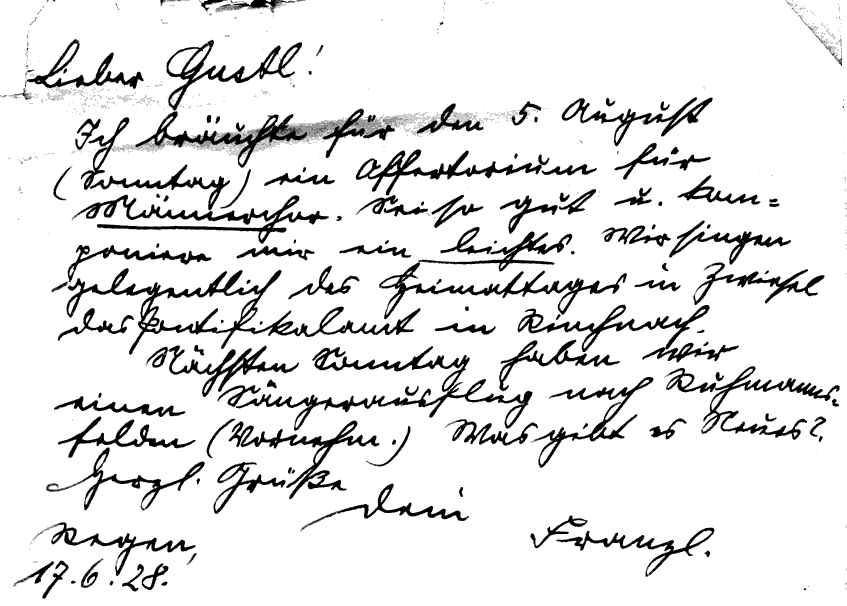 Lieber Gustl!
Ich bräuchte für den 5. August
(Sonntag) ein Offertorium für
Männerchor. Sei so gut u. kom=
poniere mir ein leichtes. Wir singen
gelegentlich des Heimattages in Zwiesel
das Pontifikalamt in Rinchnach.
Nächsten Sonntag haben wir
einen Sängerausflug nach Ruhmanns=
felden (Vornehm.) Was gibt es Neues?
Herzl. Grüße
Dein
Franzl.
Regen,
17.6.28.